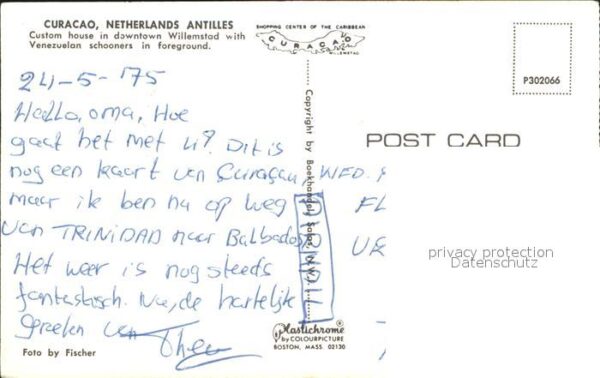 CURACAO, NETHERLANDS ANTILLES
Custom house in downtown Willemstad with
Venezuelan schooners in foreground.
SHOPPING CENTER OF THE CARIBBEAN
CURAÇAO
WILLEMSTAD
P302066
24-5-'75
Hallo, oma, Hoe
gaat het met U? Dit is
nog een kaart van Curaçau,
maar ik ben nu op weg
van TRINIDAD naar Balbados.
Het weer is nog steeds
fantastisch. Nu, de hartelijk
groeten van Theo
Copyright by Boekhandel Salas, N.W.I.
POST CARD
WED.
FL
privacy protection
Datenschutz
Plastichrome®
by COLOURPICTURE
BOSTON, MASS 02130
Foto by Fischer